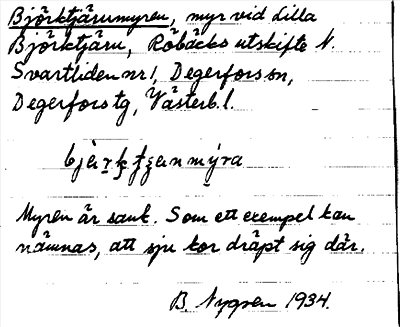 Björktjärnmyren, myr vid Lilla
Björktjärn, Röbäcks utskifte N.
Svartliden nr 1, Degerfors sn,
Degerfors tg, Västerb. l.
Myren är sank. Som ett exempel kan
nämnas, att sju kor dräpt sig där.
B. Nygren 1934.